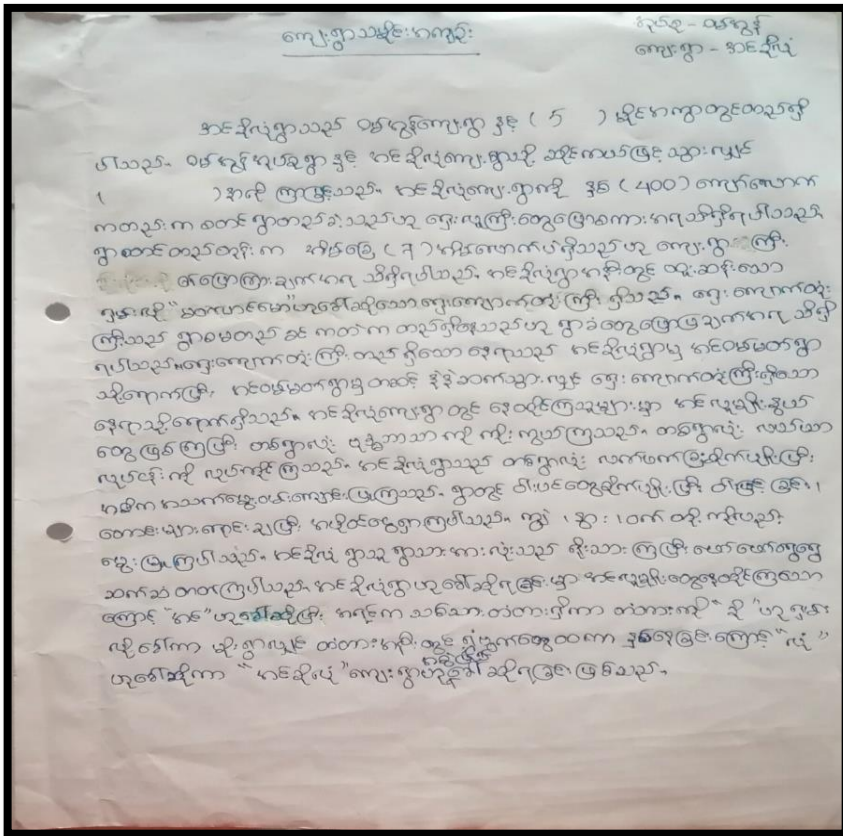 ကျေးရွာသမိုင်းအကျဉ်း
အုပ်စု - ဝမ်ကွန်
ကျေးရွာ - အင်ဆိုလုံ
အင်ဆိုလုံရွာသည် ဝမ်ကွန်ကျေးရွာ နှင့် ( 5 ) မိုင်အကွာတွင်တည်ရှိ
ပါသည်။ ဝမ်ကွန်အုပ်စုရွာ နှင့် အင်ဆိုလုံကျေးရွာသို့ ဆိုင်ကယ်ဖြင့်သွားလျှင်
( ) နာရီ ကြာမြင့်သည်။ အင်ဆိုလုံကျေးရွာကို နှစ် (400) ကျော်လောက်
ကတည်းက စတင်ရွာတည်ခဲ့သည်ဟု ရှေးလူကြီးတွေပြောစကားအရသိရှိရပါသည်။
ရွာစတင်တည်တုန်းက အိမ်ခြေ (၇) အိမ်လောက်ပဲရှိသည်ဟု ကျေးရွာ ကြီး
၏ပြောကြားချက်အရ သိရှိရပါသည်။ အင်ဆိုလုံရွာအနီးတွင် ထူးဆန်းသော
ရှမ်းလို ဟုခေါ်ဆိုသောရှေးကျောက်တုံးကြီး ရှိသည်။ ရှေးကျောက်တုံး
ကြီးသည် ရွာစမတည်ခင်ကတဲက တည်ရှိနေသည်ဟု ရွာခံတွေပြောပြချက်အရ သိရှိ
ရပါသည်။ ရှေးကျောက်တုံးကြီး တည်ရှိသော နေရာသည် အင်ဆိုလုံရွာမှ အင်ဝမ်မတ်ရွာ
သို့ရောက်ပြီး အင်ဝမ်မတ်ရွာမှတဆင့် နဲနဲဆက်သွားလျှင် ရှေးကျောက်တုံးကြီးရှိသော
နေရာသို့ရောက်ရှိသည်။ အင်ဆိုလုံကျေးရွာတွင် နေထိုင်ကြသူများမှာ အင်လူမျိုးနွယ်
တွေဖြစ်ကြပြီး တစ်ရွာလုံး ဗုဒ္ဓဘာသာကို ကိုးကွယ်ကြသည်။ တစ်ရွာလုံး လယ်ယာ
လုပ်ငန်းကို လုပ်ကိုင်ကြသည်။ အင်ဆိုလုံရွာသည် တစ်ရွာလုံး လက်ဖက်ခြံစိုက်ပျိုးပြီး
အဓိကအသက်မွေးဝမ်းကျောင်းပြုကြသည်။ ရွာတွင် ဝါးပင်တွေစိုက်ပျိုးပြီး ဝါးဖြင့် ခြင်း၊
တောင်းများရောင်းချပြီး အပိုဝင်ငွေရှာကြပါသည်။ ကျွဲ၊ နွား၊ ဝက် တို့ ကိုလည်း
မွေးမြူကြပါသည်။ အင်ဆိုလုံ ရွာသူရွာသားအားလုံးသည် ရိုးသားကြပြီး ဖော်ဖော်ရွေရွေ
ဆက်ဆံတတ်ကြပါသည်။ အင်ဆိုလုံရွာဟုခေါ်ဆိုရခြင်းမှာ အင်လူမျိုးတွေနေထိုင်ကြသော
ကြောင့် "အင်" ဟုခေါ်ဆိုပြီး အရင်က သစ်သားတံတားရှိကာ တံတားကို "ဆို" ဟု ရှမ်း
လိုခေါ်ကာ မိုးရွာလျှင် တံတားအနီးတွင် ရွှံ့ဗွက်တွေထကာ နှစ်နေခြင်းကြောင့် "လုံ"
ဟုခေါ်ဆိုကာ "အင်ဆိုလုံ" ကျေးရွာဟုခေါ်ဆိုရခြင်းဖြစ်သည်။